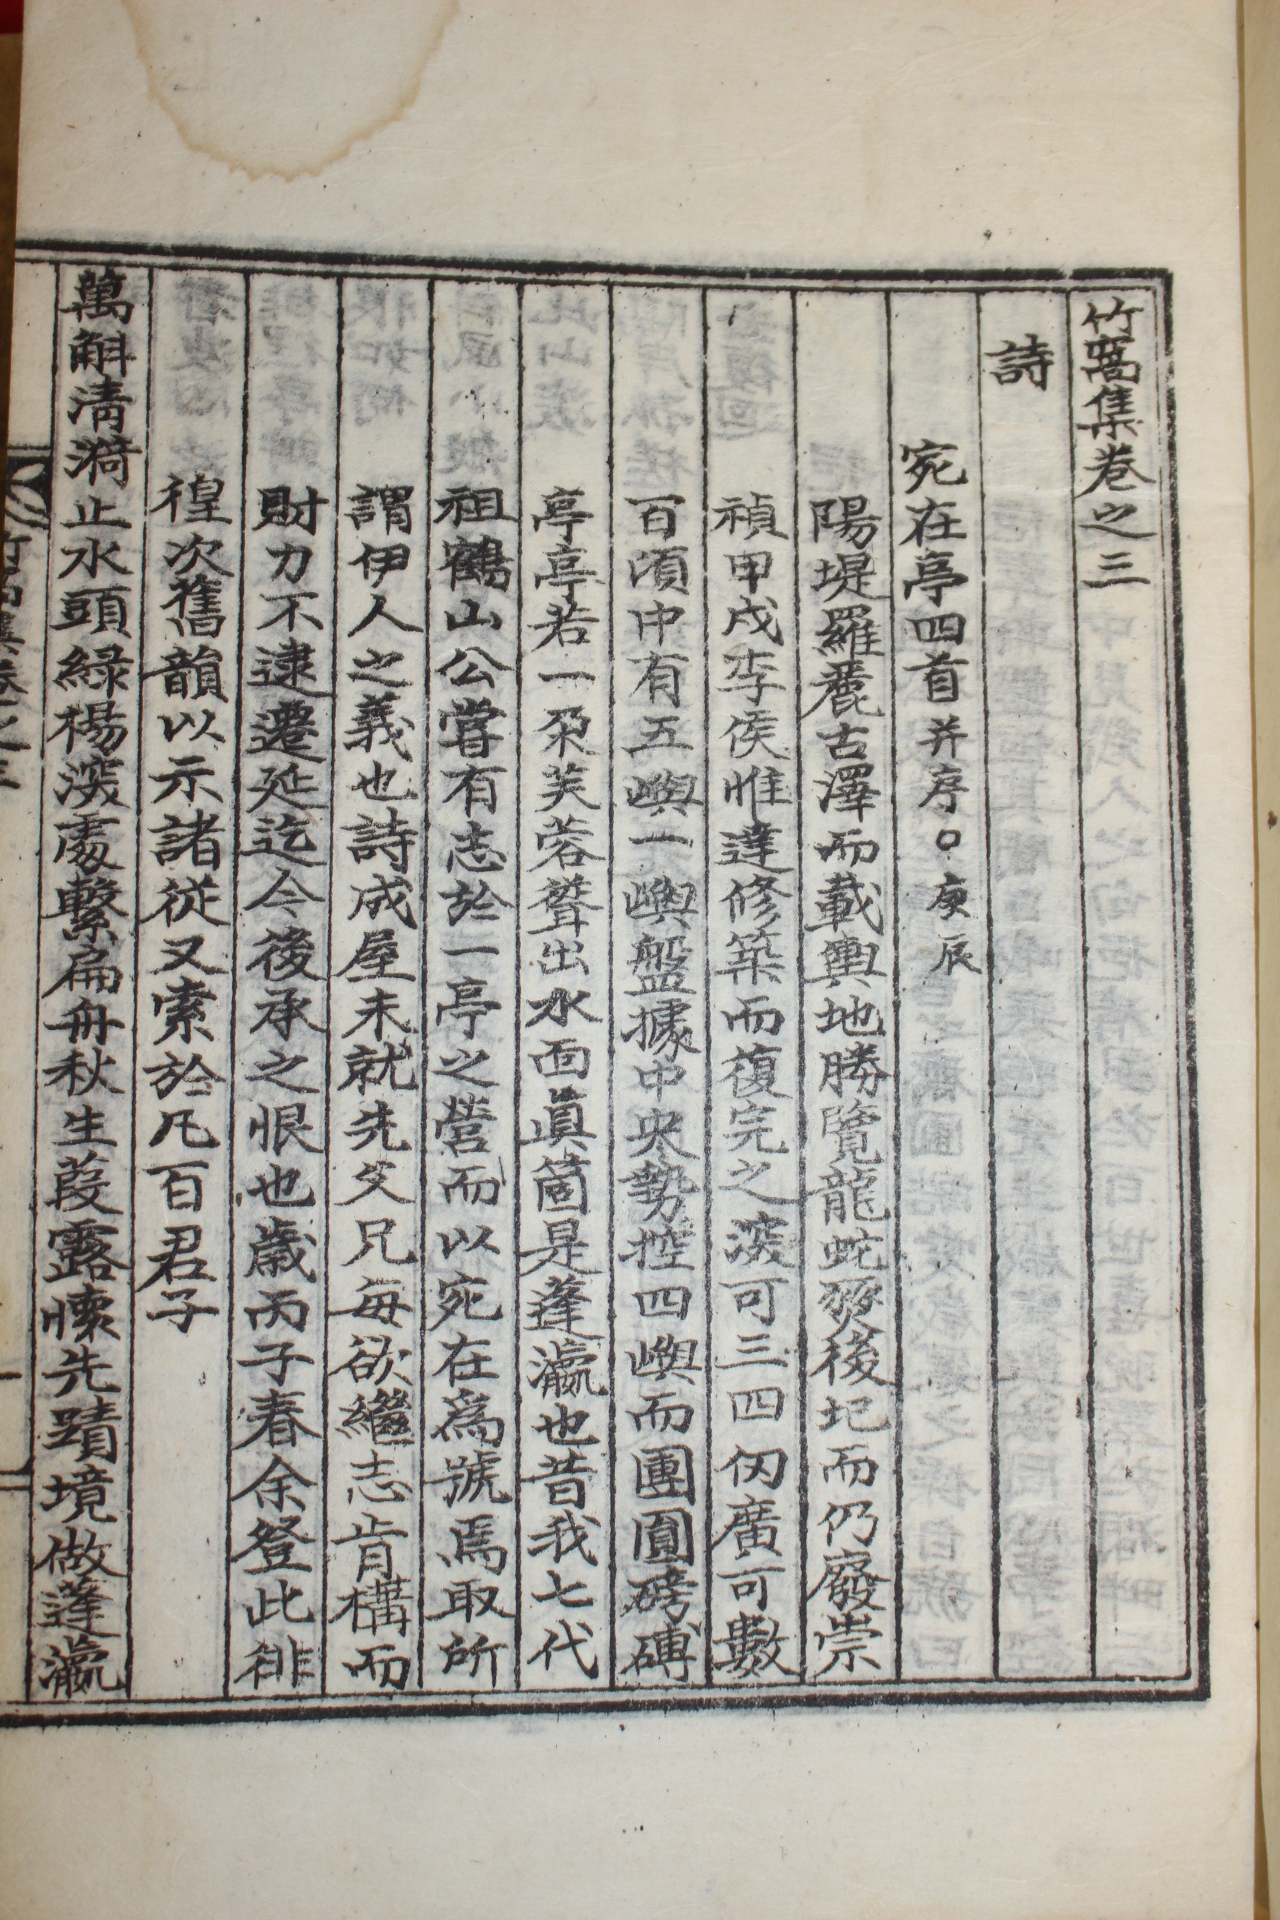 竹窩集卷之三
詩
宛在亭四首并序○庚辰
陽堤羅麗古澤而載輿地勝覽龍蛇燹後圮而仍廢崇
禎甲戌李侯惟達修築而復完之深可三四仞廣可數
百頃中有五嶼一嶼盤據中央勢控四嶼而團圓磅礴
亭亭若一朶芙蓉聳出水面眞箇是蓬瀛也昔我七代
祖鶴山公嘗有志於一亭之營而以宛在爲號焉取所
謂伊人之義也詩成屋未就先父兄每欲繼志肯構而
財力不逮遷延迄今後承之恨也歲丙子春余登此徘
徨次舊韻以示諸從又索於凡百君子
萬斛淸漪止水頭綠楊深處繫扁舟秋生葭露懷先蹟境倣蓬瀛
竹窩集卷之三